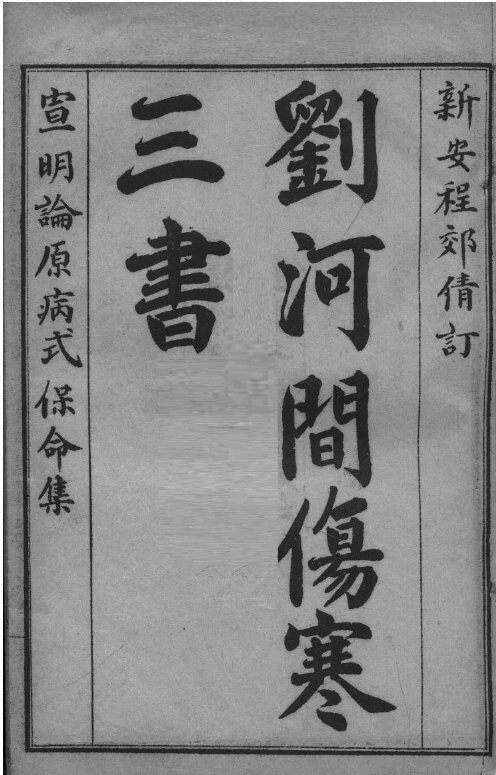 新安程郊倩訂
劉河間傷寒
三書
宣明論原病式保命集